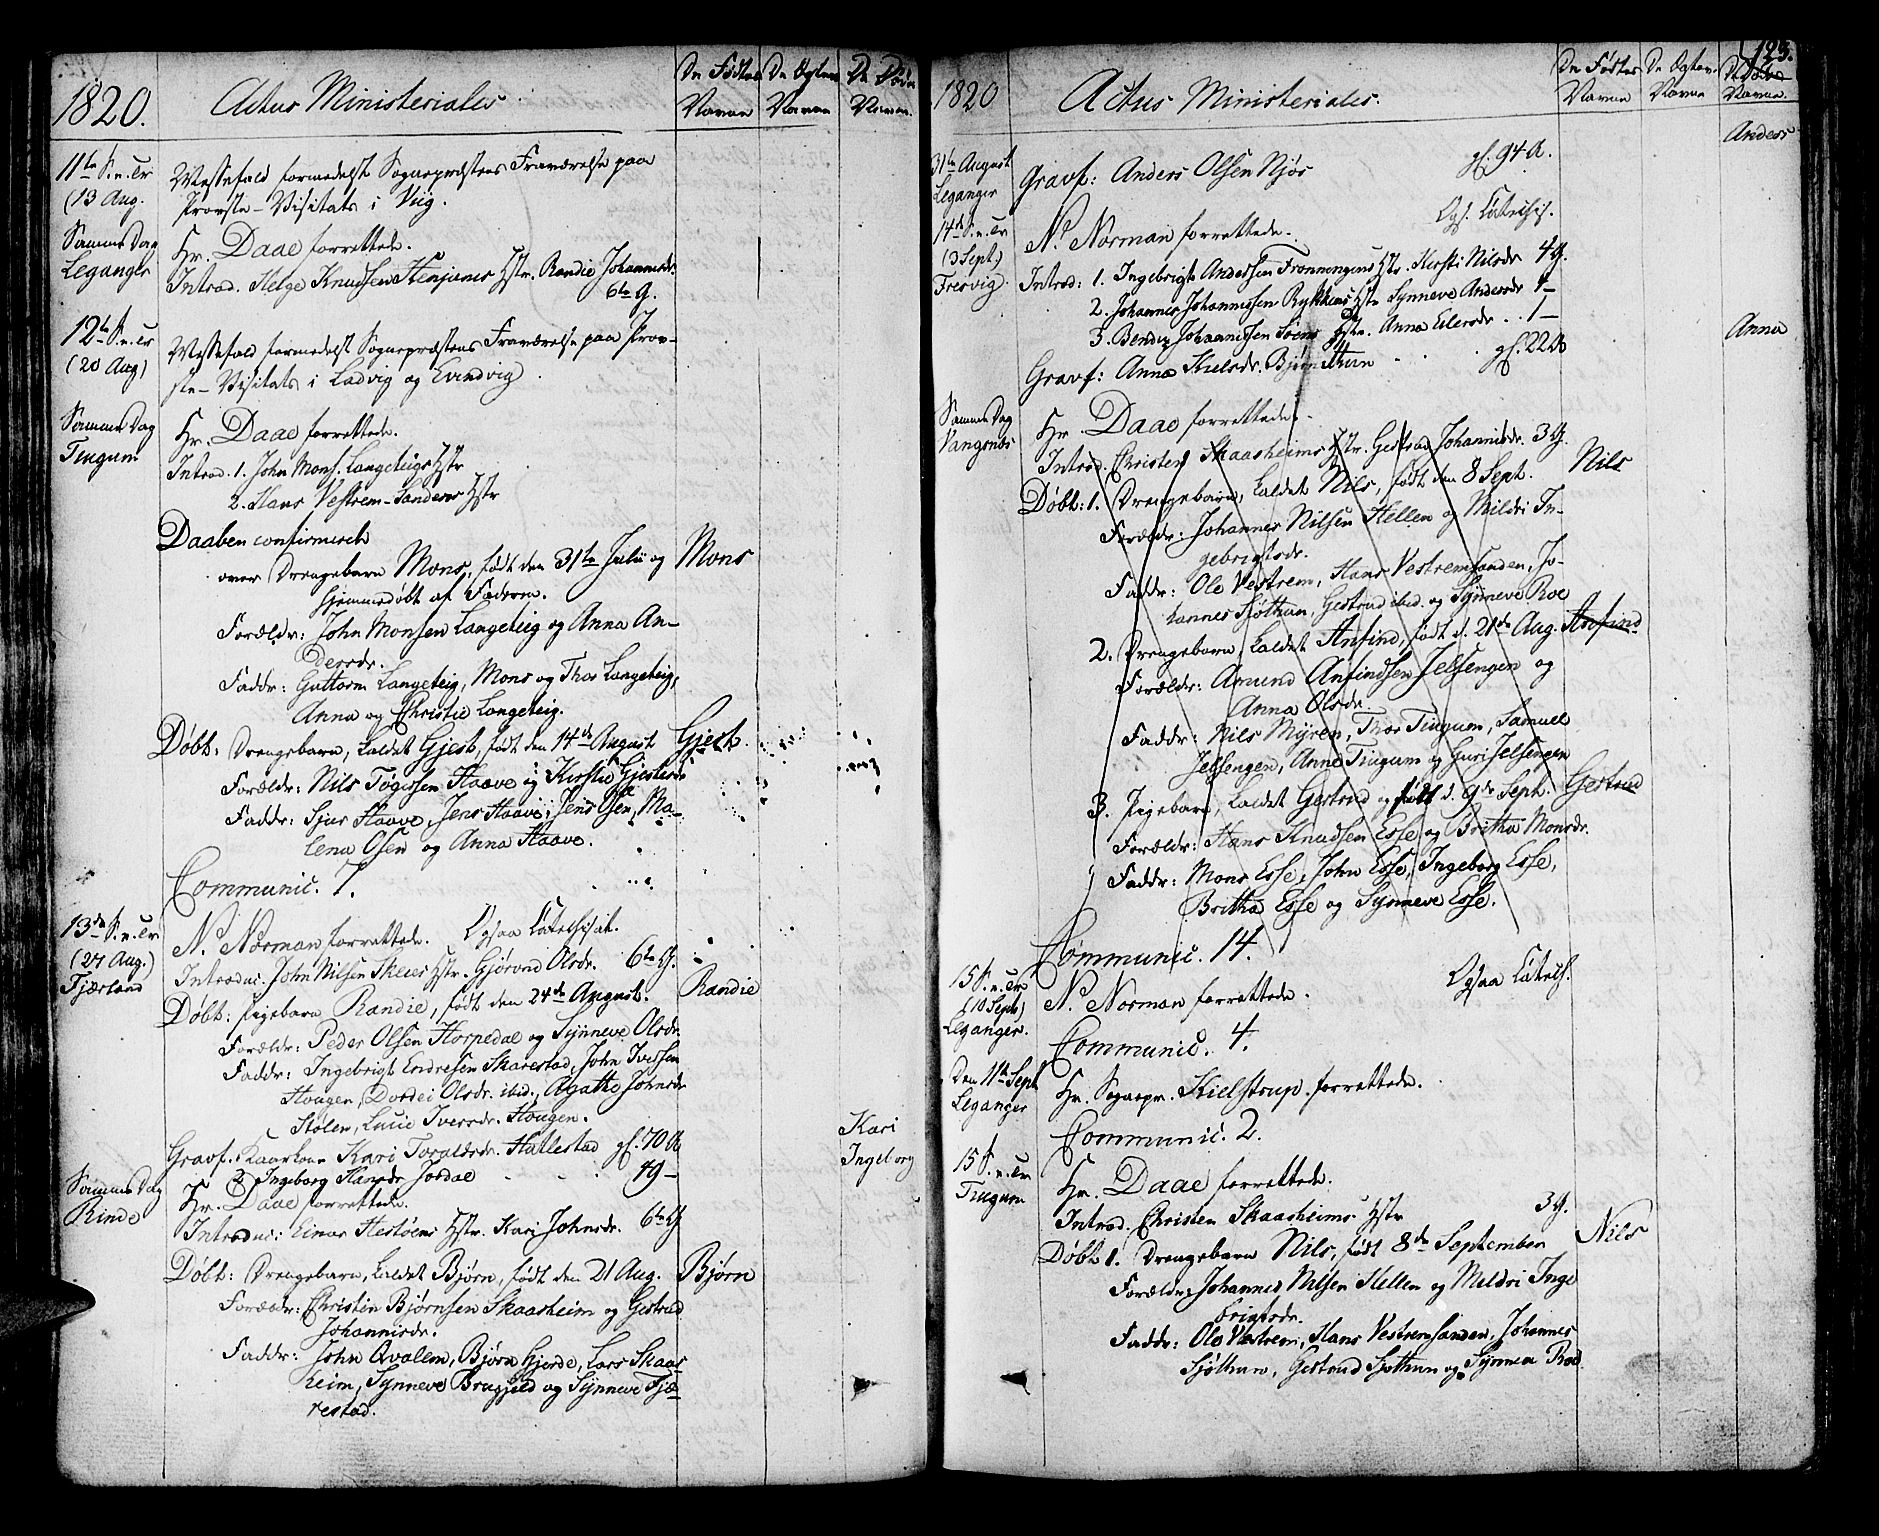 1820. Actus Ministeriales. De Fødtes Navne De Ægtev. Navne De Dødes Navne.
11te S. e. Tr. Messefald formedelst Sognepræstens Fraværelse paa
(13 Aug. Provste-Visitats i Viig.
Samme Dag Hr. Daae forrettede.
Leganger Introd. Helge Knudsen Henjums Hstr. Randie Johannesdr.
6te g.
12te S. e. Tr. Messefald formedelst Sognepræstens Fraværelse paa Prov-
(20 Aug) ste-Visitats i Ladvig og Evindvig.
Samme Dag Hr. Daae forrettede.
Tiugum Introd. 1. John Mons. Langeteigs Hstr
2. Hans Vestrem-Sandens Hstr
Daaben confirmeret
over Drengebarn Mons, født den 31te Julii og Mons
hjemmedøbt af Faderen.
Forældr: John Monsen Langeteig og Anna An-
dersdr.
Faddr: Guttorm Langeteig, Mons og Thor Langeteig,
Anna og Christie Langeteig.
Døbt: Drengebarn, kaldet Gjest, født den 14de August Gjest.
Forældr: Nils Tøgersen Haave og Kirstie Gjestsdr
Faddr: Sjur Haave, Jens Haave, Jens Osen, Ma-
lena Osen og Anna Haave.
Communic. 7.
13de S. e. Tr N. Norman forrettede. Ogsaa Catechisat.
(27 Aug.) Introduc. John Nilsen Skeies Hstr. Gjørond Olsdr. 6te g.
Fjærland Døbt: Pigebarn Randie, født den 24de August. Randie
Forældr: Peder Olsen Horpedal og Synneve Olsdr
Faddr: Ingebrigt Endresen Skarestad, John Iversen
Hougen, Dordei Olsdr. ibid., Agathe Johnsdr
Stølen, Lucie Iversdr. Hougen.
Gravf. Kaarkone Kari Toraldsdr. Hatlestad gl. 70 A Kari
2 Ingeborg Hansdr Jordal 49— Ingeborg
Samme Dag Hr. Daae forrettede.
Rinde Introduc: Einar Hestøens Hstr. Kari Johnsdr. 6te g
Døbt: Drengebarn, kaldet Bjørn, født den 21 Aug. Bjørn
Forældr: Christen Bjørnsen Skaasheim og Gestrud
Johannisdr.
Faddr: John Qvalem, Bjørn Hjerde, Lars Skaas-
heim, Synneve Bruggeld og Synneve Fjæ-
restad.
123.
1820 Actus Ministeriales. De Fødtes Navne De Ægtev. Navne De Dødes Navne.
31te August Gravf: Anders Olsen Njøs gl. 94 A. Anders
Leganger
14de S. e. Tr N. Norman forrettede. Ogs. Catechis.
(3 Sept.) Introd: 1. Ingebrigt Andersen Fronningens Hstr. Kersti Nilsdr 4 g.
Fresvig 2. Johannes Johannessen Rykkens Hstr Synneve Andersdr 1—
3. Bendix Johannissen Hstr. Anna Eilersdr .. 1—
Gravf: Anna Kielsdr. Bjørn gl. 22 A Anna
Samme Dag Hr Daae forrettede.
Vangsnes Introd. Christen Skaasheims Hstr. Gestrud Johannisdr. 3 g.
Døbt: 1. Drengebarn, kaldet Nils, født den 8 Sept. Nils
Forældr: Johannes Nilsen Hellen og Mildri In-
gebrigtsdr.
Faddr: Ole Vestrem, Hans Vestremsanden, Jo-
hannes Sjøthun, Gestrud ibid. og Synneve Roe
2. Drengebarn kaldet Anfind, født d. 21de Aug. Anfind
Forældr: Amund Anfindsen Jelsengen og
Anna Olsdr.
Faddr: Nils Myren, Thor Tiugum, Samuel
Jelsengen, Anne Tiugum og Guri Jelsengen
3. Pigebarn, kaldet Gestrud og født d. 9de Sept. Gestrud
Forældr: Hans Knudsen Esse og Britha Monsdr.
Faddr: Mons Esse, John Esse, Ingeborg Esse,
Britha Esse og Synneve Esse.
Communic. 14.
15 S. e. Tr N. Norman forrettede. Ogsaa Catech.
(10 Sept)
Leganger. Communic. 4.
Den 11te Sept Hr. Sognepr. Kielstrup forrettede.
Leganger Communic. 2.
15 S. e. Tr Hr. Daae forrettede.
Tiugum Introd. Christen Skaasheims Hstr 3 g.
Døbt 1. Drengebarn Nils, født 8de September Nils
Forældr: Johannes Nilsen Hellen og Meldri Inge
brigtsdr.
Faddr: Ole Vestrem, Hans Vestremsanden, Johannes
Sjøthun, Gestrud Sjøthun og Synneva Roe.